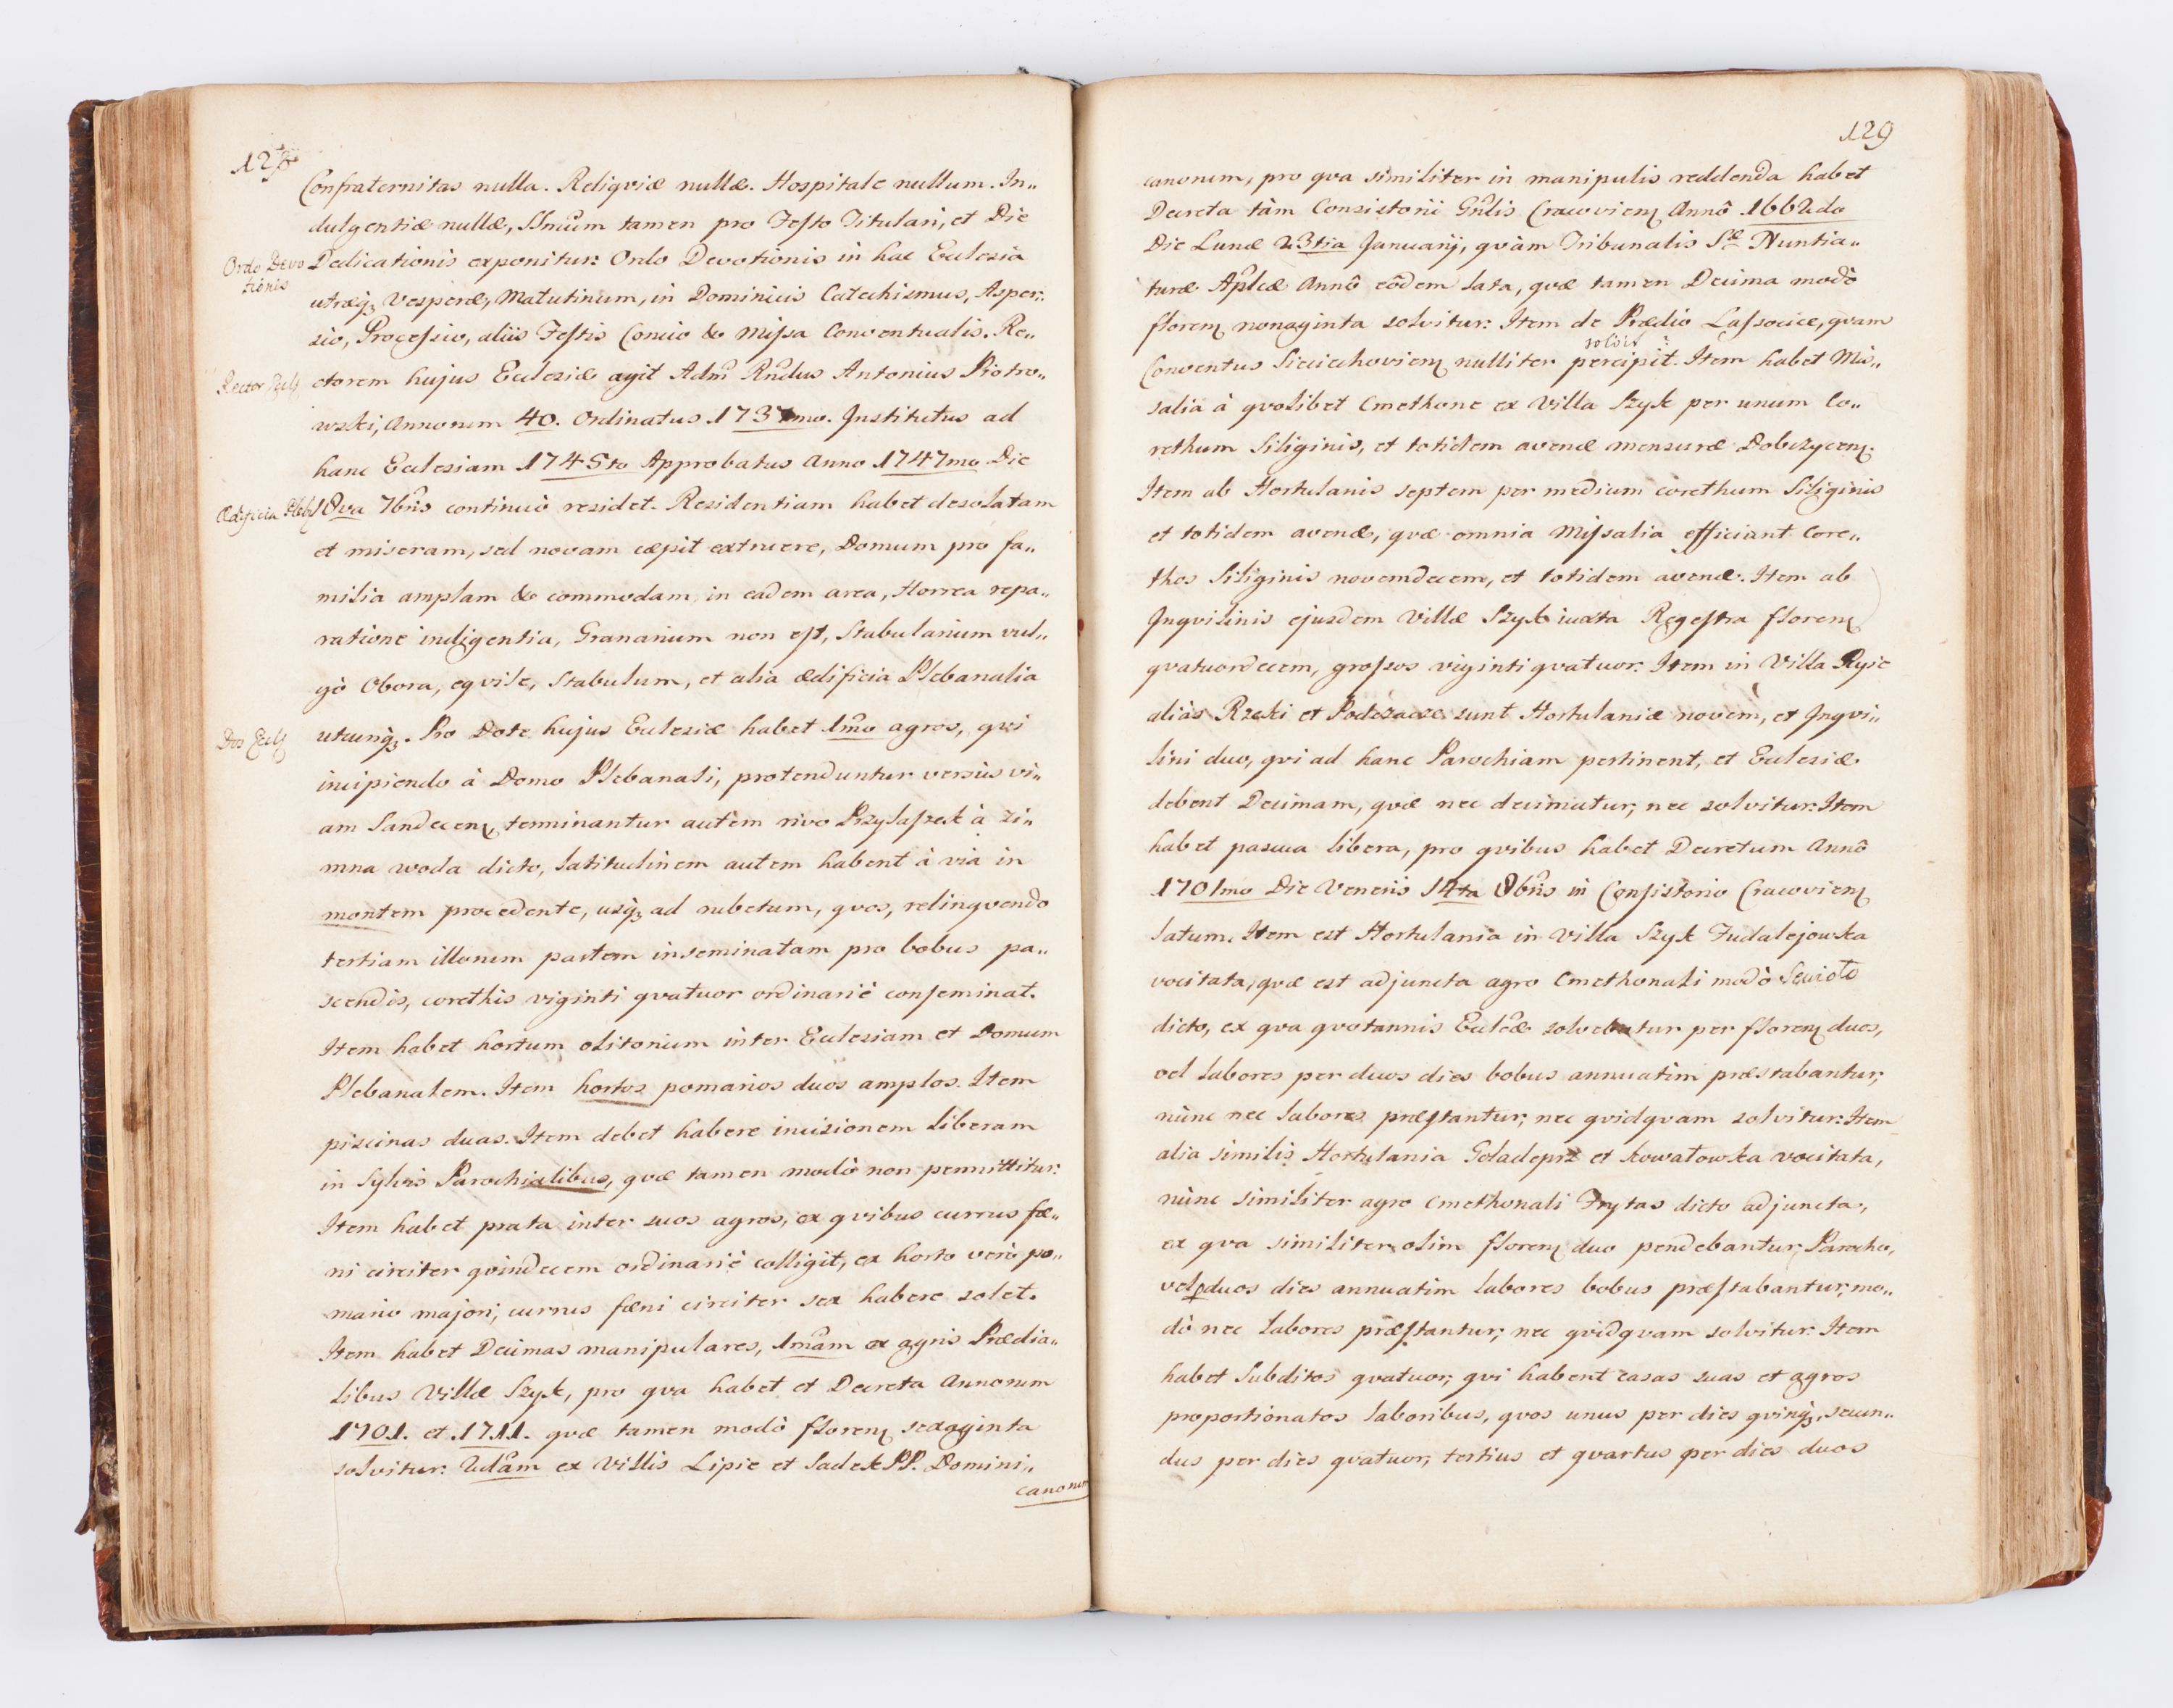 128
Confraternitas nulla. Reliqviæ nullæ. Hospitale nullum. In„
dulgentiæ nullæ, SSmum tamen pro Festo Titulari, et Die
Ordo Devo
tionis
Dedicationis exponitur: Ordo Devotionis in hac Ecclesia
utræq3 Vesperæ, Matutinum, in Dominicis Catechismus, Asper:
sio, Processio, aliis Festis Concio & Missa Conventualis. Re„
Rector Eccl
ctorem hujus Ecclesiæ agit Adm Rndus Antonius Piotro„
wski, Annorum 40. Ordinatus 1737mo. Institutus ad
hanc Ecclesiam 1745to Approbatus Anno 1747mo Die
Ædificia Pleb
18va 7bris continuò residet. Residentiam habet desolatam
et miseram, sed novam cæpit extruere, Domum pro fa„
milia amplam & commodam in eadem area, Horrea repa„
ratione indigentia, Granarium non est, Stabularium vul„
gò Obora, eqvile, Stabulum, et alia ædificia Plebanalia
Dos Eccl
utcunq3. Pro Dote hujus Ecclesiæ habet 1mo agros, qvi
incipiendo à Domo Plebanali, protenduntur versùs vi„
am Sandecen, terminantur autem rivo Przylaszek à zi„
mna woda dicto, latitudinem autem habent à via in
montem procedente, usq3 ad rubetum, qvos, relinqvendo
tertiam illorum partem inseminatam pro bobus pa„
scendis, corethis viginti qvatuor ordinariè conseminat.
Item habet hortum olitorium inter Ecclesiam et Domum
Plebanalem. Item hortos pomarios duos amplos. Item
piscinas duas. Item debet habere incisionem liberam
in Sylvis Parochialibus, qvæ tamen modò non permittitur:
Item habet prata inter suos agros, ex qvibus currus fæ„
ni circiter qvindecem ordinariè colligit, ex horto verò po„
mario majori, currus fæni circiter sex habere solet.
Item habet Decimas manipulares, 1mam ex agris Prædia„
libus Villæ Szyk, pro qva habet et Decreta Annorum
1701. et 1711. qvæ tamen modò floren sexaginta
solvitur: 2dam ex Villis Lipie et Sadek PP. Domini„
canorum
129
canorum, pro qva similiter in manipulis reddenda habet
Decreta tàm Consistorii Gnlis Cracovien Annô 1662do
Die Lunæ 23tia Januarij, qvàm Tribunalis Sæ Nuntia„
turæ Aplicæ Annô eôdem lata, qvæ tamen Decima modò
floren nonaginta solvitur: Item de Prædio Lassocice, qvam
solvit
Conventus Sieciechovien nulliter percipit. Item habet Mis„
salia à qvolibet Cmethone ex Villa Szyk per unum Co„
rethum Siliginis, et totidem avenæ mensuræ Dobczycen.
Item ab Hortulanis septem per medium corethum Siliginis
et totidem avenæ, qvæ omnia Missalia efficiunt Core„
thos Siliginis novemdecem, et totidem avenæ. Item ab
Inqvilinis ejusdem Villæ Szyk iuxta Regestra floren
qvatuordecem, grossos viginti qvatuor. Item in Villa Ryie
aliàs Rzeki et Podlesacze sunt Hortulaniæ novem, et Inqvi„
lini duo, qvi ad hanc Parochiam pertinent, et Ecclesiæ
debent Decimam, qvæ nec decimatur, nec solvitur: Item
habet pascua libera, pro qvibus habet Decretum Annô
1701mo Die Veneris 14ta 8bris in Consistorio Cracovien
latum. Item est Hortulania in Villa Szyk Fudalejowska
vocitata, qvæ est adjuncta agro Cmethonali modò
dicto, ex qva qvotannis Ecclæ solvebatur per floren duos,
vel labores per duos dies bobus annuatim præstabantur,
nùnc nec labores præstantur, nec qvidqvam solvitur: Item
alia similis Hortulania Goladeprz et Kowałowska vocitata,
nùnc similiter agro Cmethonali Frytas dicto adjuncta,
ex qva similiter olim floren duo pendebantur Parocho,
vel p duos dies annuatim labores bobus præstabantur, mo„
dò nec labores præstantur, nec qvidqvam solvitur. Item
habet Subditos qvatuor, qvi habent casas suas et agros
proportionatos laboribus, qvos unus per dies qvinq3, secun„
dus per dies qvatuor, tertius et qvartus per dies duos